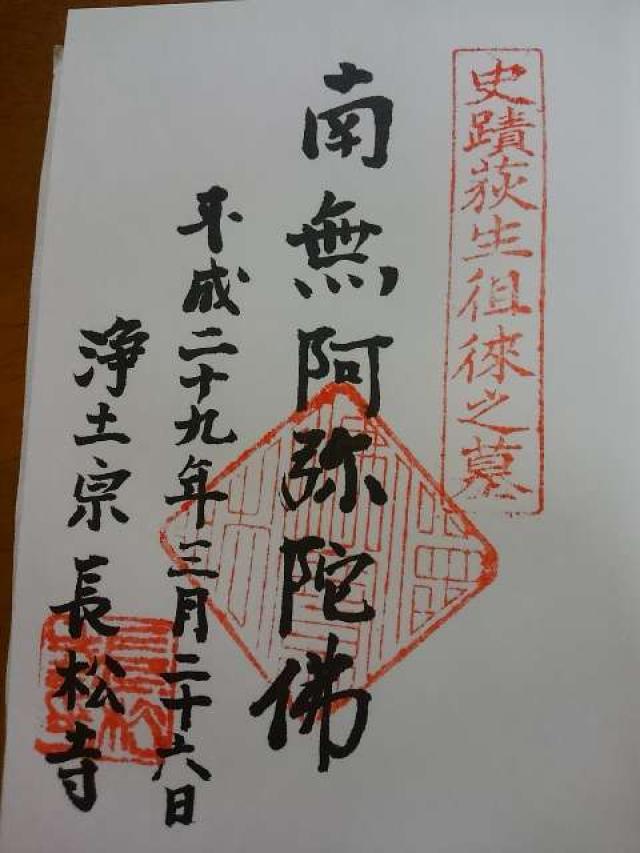 史蹟荻生徂徠之墓
南無阿弥陀佛
平成二十九年三月二十六日
浄土宗長松寺